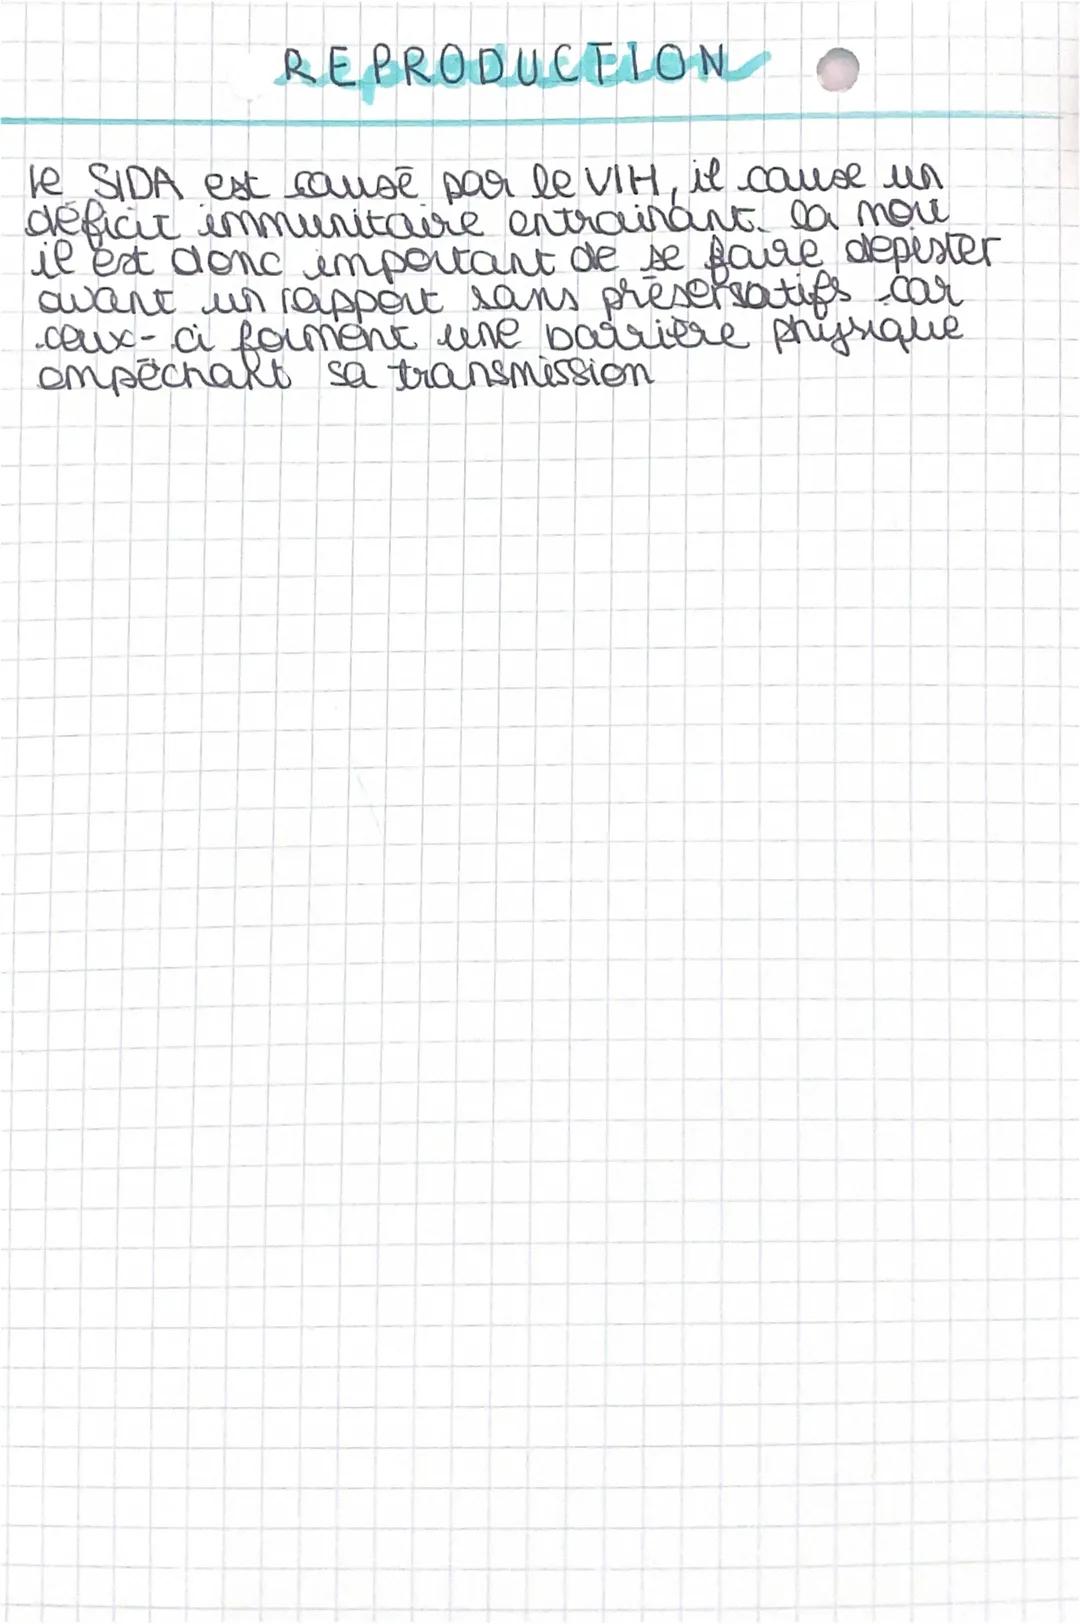 REPRODUCTION
le SIDA est causé par le VIH, il cause un
déficit immunitaire entrainant la mort
il est donc important de se faire dépister
avant un rapport sans préservatifs car
ceux-ci forment une barrière physique
empêchant sa transmission